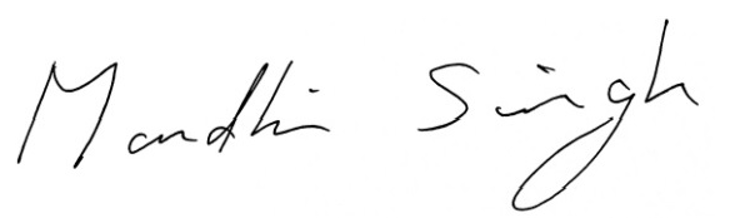 Mandhir Singh